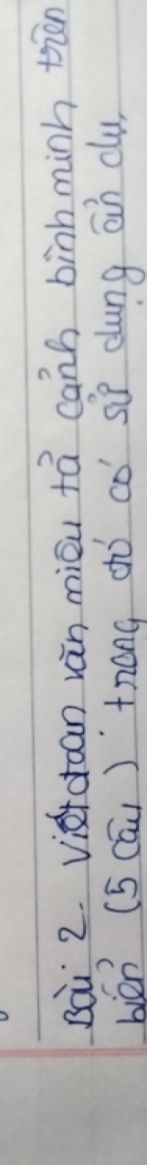 Bài 2. Viết đoạn văn miêu tả cảnh bình minh trên
biển (5 câu) trong đó có sử dụng ẩn dụ,